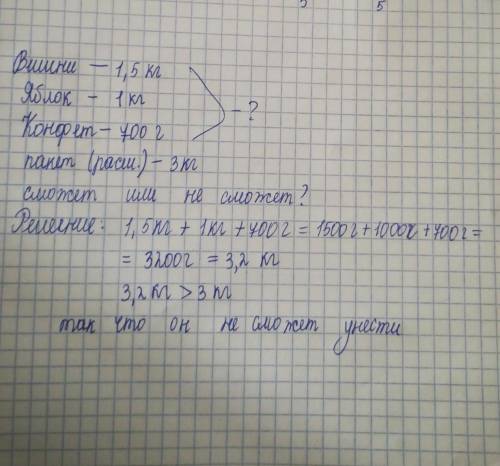 5
Вишни — 1,5 кг
Яблок – 1 кг
Конфет – 700 г
– ?
пакет (расш.) – 3 кг
сможет или не сможет?
Решение: 1,5 кг + 1 кг + 700 г = 1500 г + 1000 г + 700 г =
= 3200 г = 3,2 кг
3,2 кг > 3 кг
так что он не сможет унести